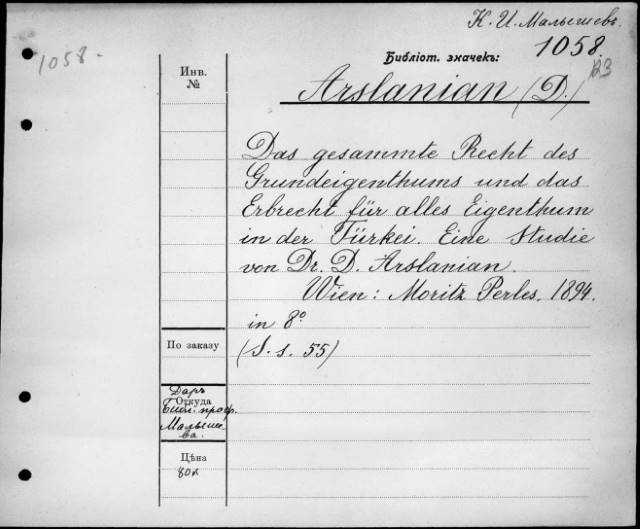 К. И. Малышевъ.
1058.
1058
Библіот. значекъ:
Инв.
№
Arslanian (D.)
Das gesammte Recht des
Grundeigenthums und das
Erbrecht für alles Eigenthum
in der Türkei. Eine Studie
von Dr. D. Arslanian.
Wien: Moritz Perles. 1894.
in 8°
По заказу
(S. s. 55)
Даръ
Откуда
Библ. проф.
Малыше
ва.
Цѣна
80к